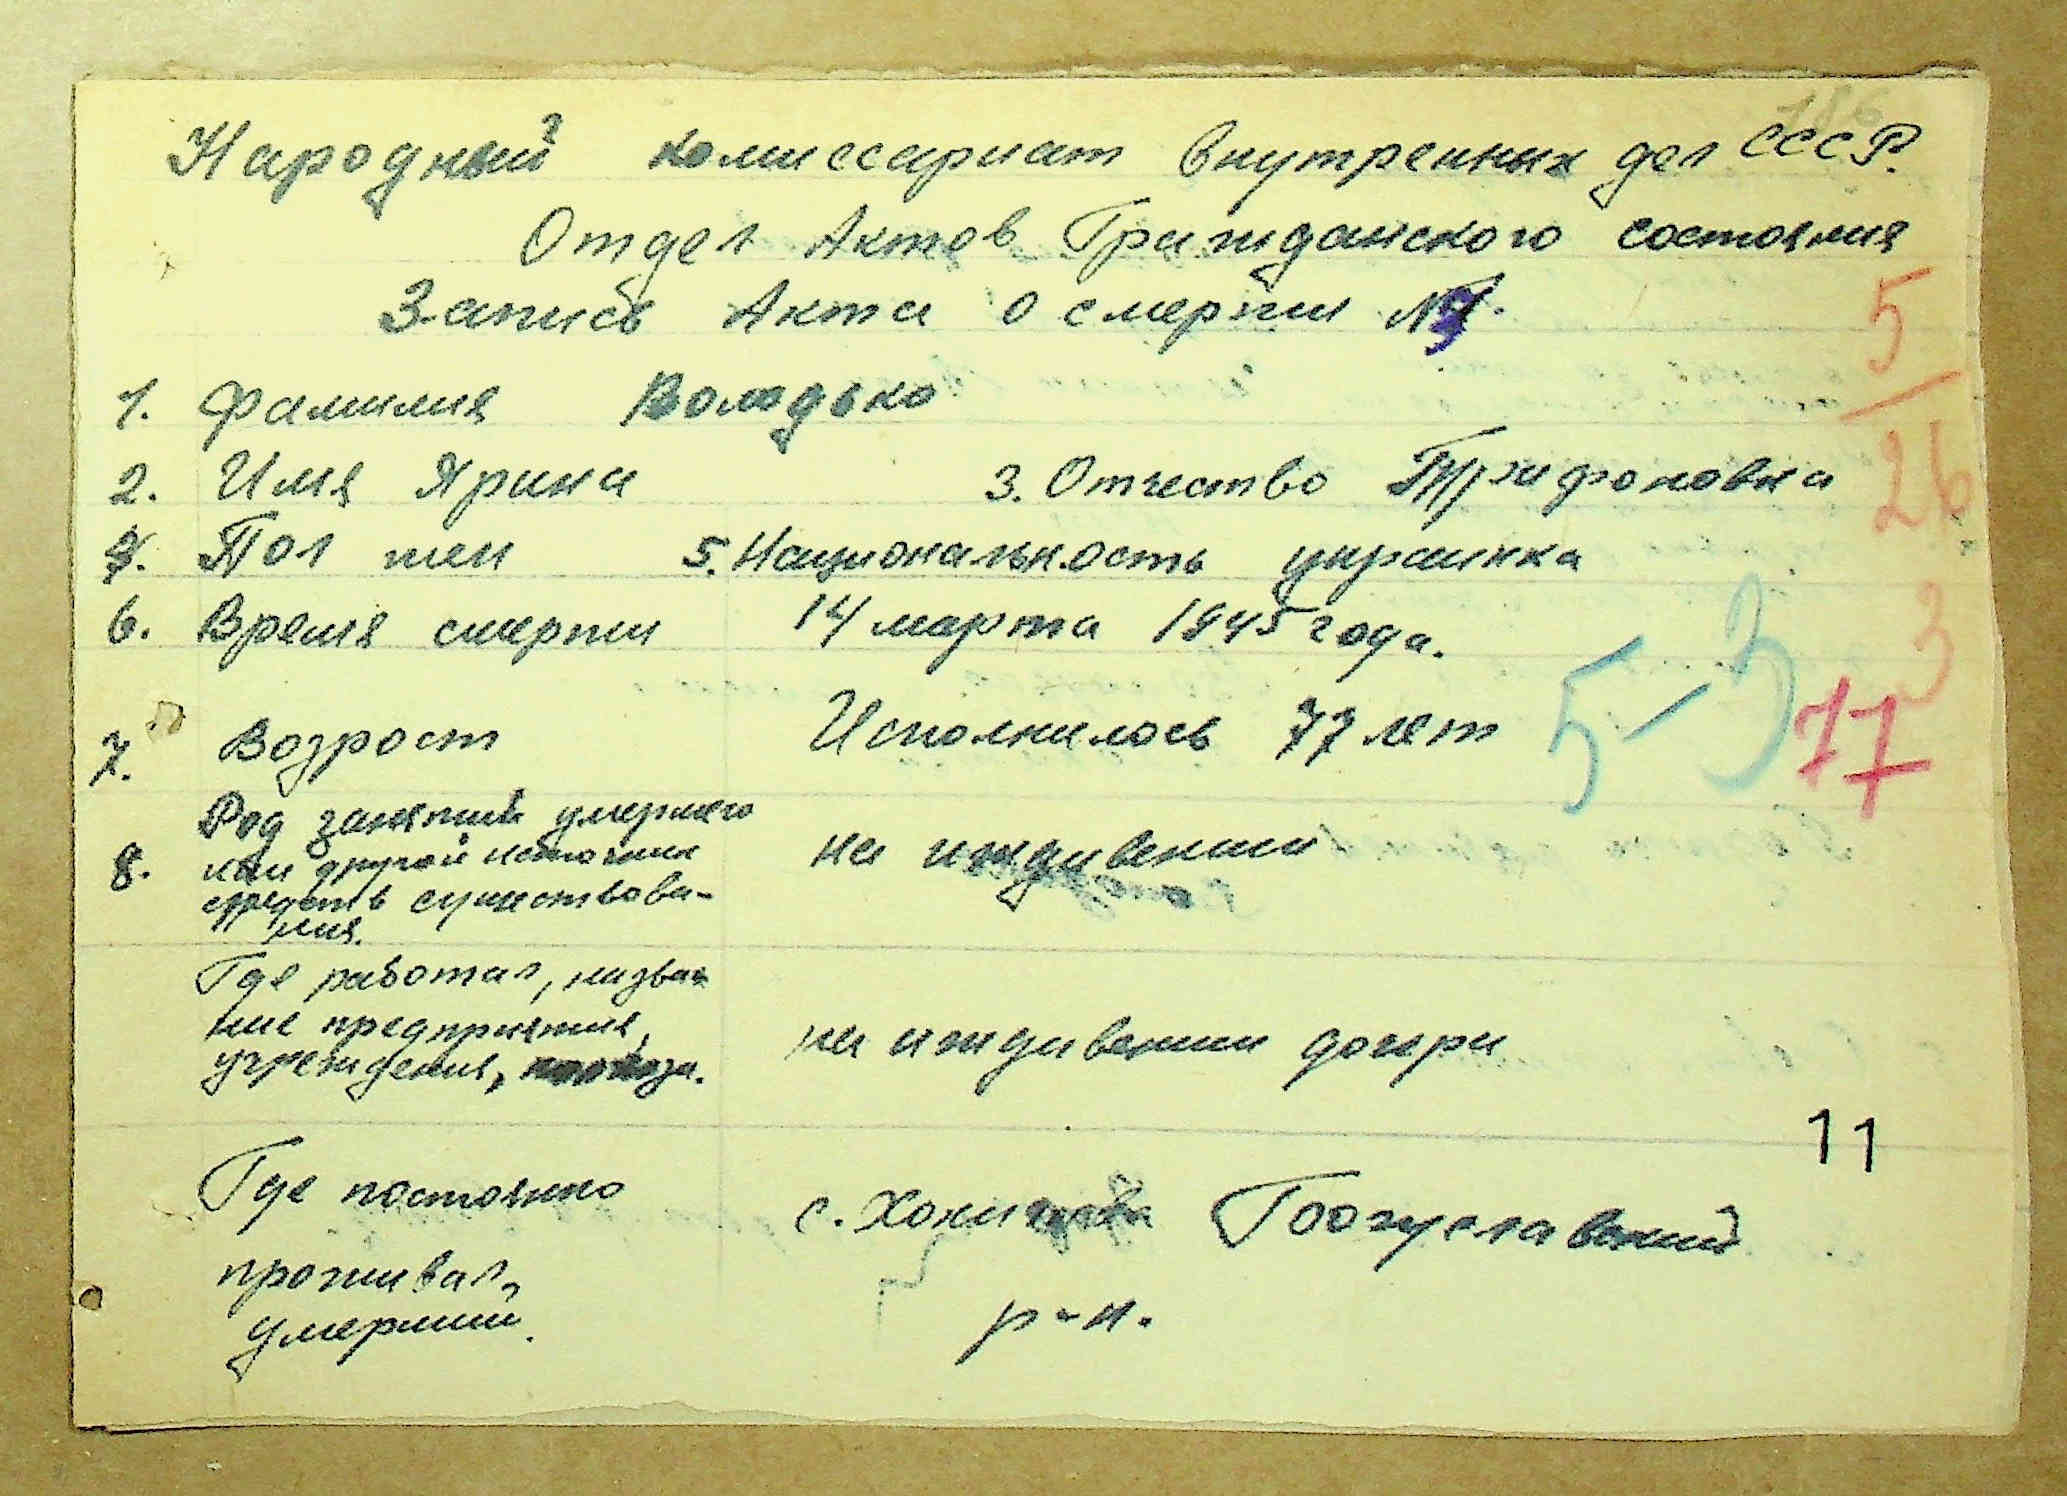 Народный комиссариат внутренных дел СССР.
Отдел Актов Гражданского состояния
Запись Акта о смерти №
1. Фамилия Володько
2. Имя Ярина 3. Отчество Трифоновна
4. Пол жен 5. Национальность украинка
6. Время смерти 14 марта 1945 года.
7. Возрост Исполнилось 77 лет
8. Род занятий умершего
или другой источник
средств существова-
ния.
на иждивении
Где работал, назва
ние предприятия,
учреждения,
на иждивении дочери
Где постоянно
проживал
умерший.
с. Гоогуславский
р-н.
5
26
3
5-3
77
11